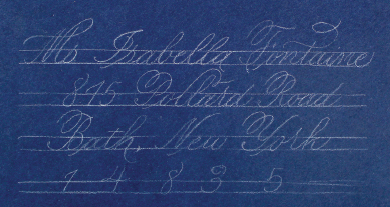 Ms Isabella Fontaine
875 Pollard Road
Bath, New York
1 4 8 3 5